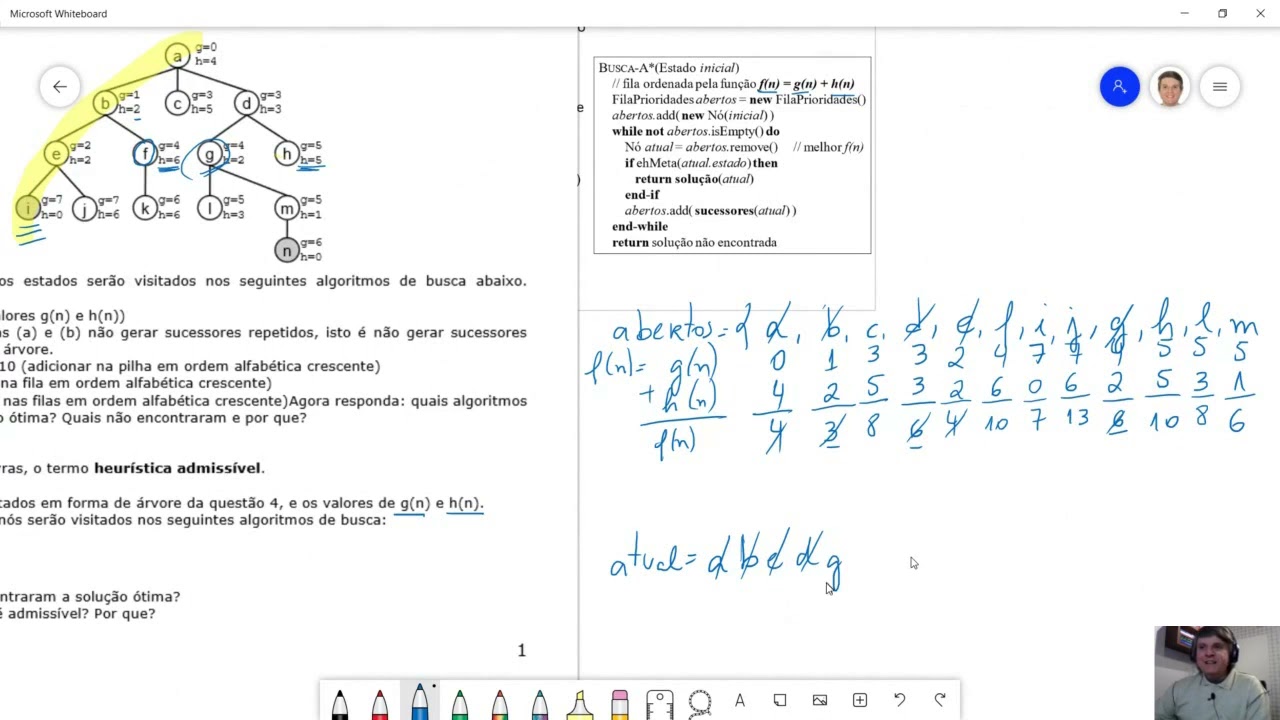 Microsoft Whiteboard
a g=0 h=4
b g=1 h=2 c g=3 h=5 d g=3 h=3
e g=2 h=2 f g=4 h=6 g g=4 h=2 h g=5 h=5
i g=7 h=0 j g=7 h=6 k g=6 h=6 l g=5 h=3 m g=5 h=1
n g=6 h=0
os estados serão visitados nos seguintes algoritmos de busca abaixo.
alores g(n) e h(n))
as (a) e (b) não gerar sucessores repetidos, isto é não gerar sucessores
árvore.
10 (adicionar na pilha em ordem alfabética crescente)
na fila em ordem alfabética crescente)
nas filas em ordem alfabética crescente)Agora responda: quais algoritmos
o ótima? Quais não encontraram e por que?
ras, o termo heurística admissível.
tados em forma de árvore da questão 4, e os valores de g(n) e h(n).
nós serão visitados nos seguintes algoritmos de busca:
ntraram a solução ótima?
é admissível? Por que?
1
e
)
BUSCA-A*(Estado inicial)
// fila ordenada pela função f(n) = g(n) + h(n)
FilaPrioridades abertos = new FilaPrioridades()
abertos.add( new Nó(inicial) )
while not abertos.isEmpty() do
Nó atual = abertos.remove() // melhor f(n)
if ehMeta(atual.estado) then
return solução(atual)
end-if
abertos.add( sucessores(atual) )
end-while
return solução não encontrada
abertos = { a, b, c, d, e, f, i, j, g, h, l, m
f(n) = g(n) 0 1 3 3 2 4 7 7 4 5 5 5
+ h(n) 4 2 5 3 2 6 0 6 2 5 3 1
f(n) 4 3 8 6 4 10 7 13 6 10 8 6
atual = a b e d g
A